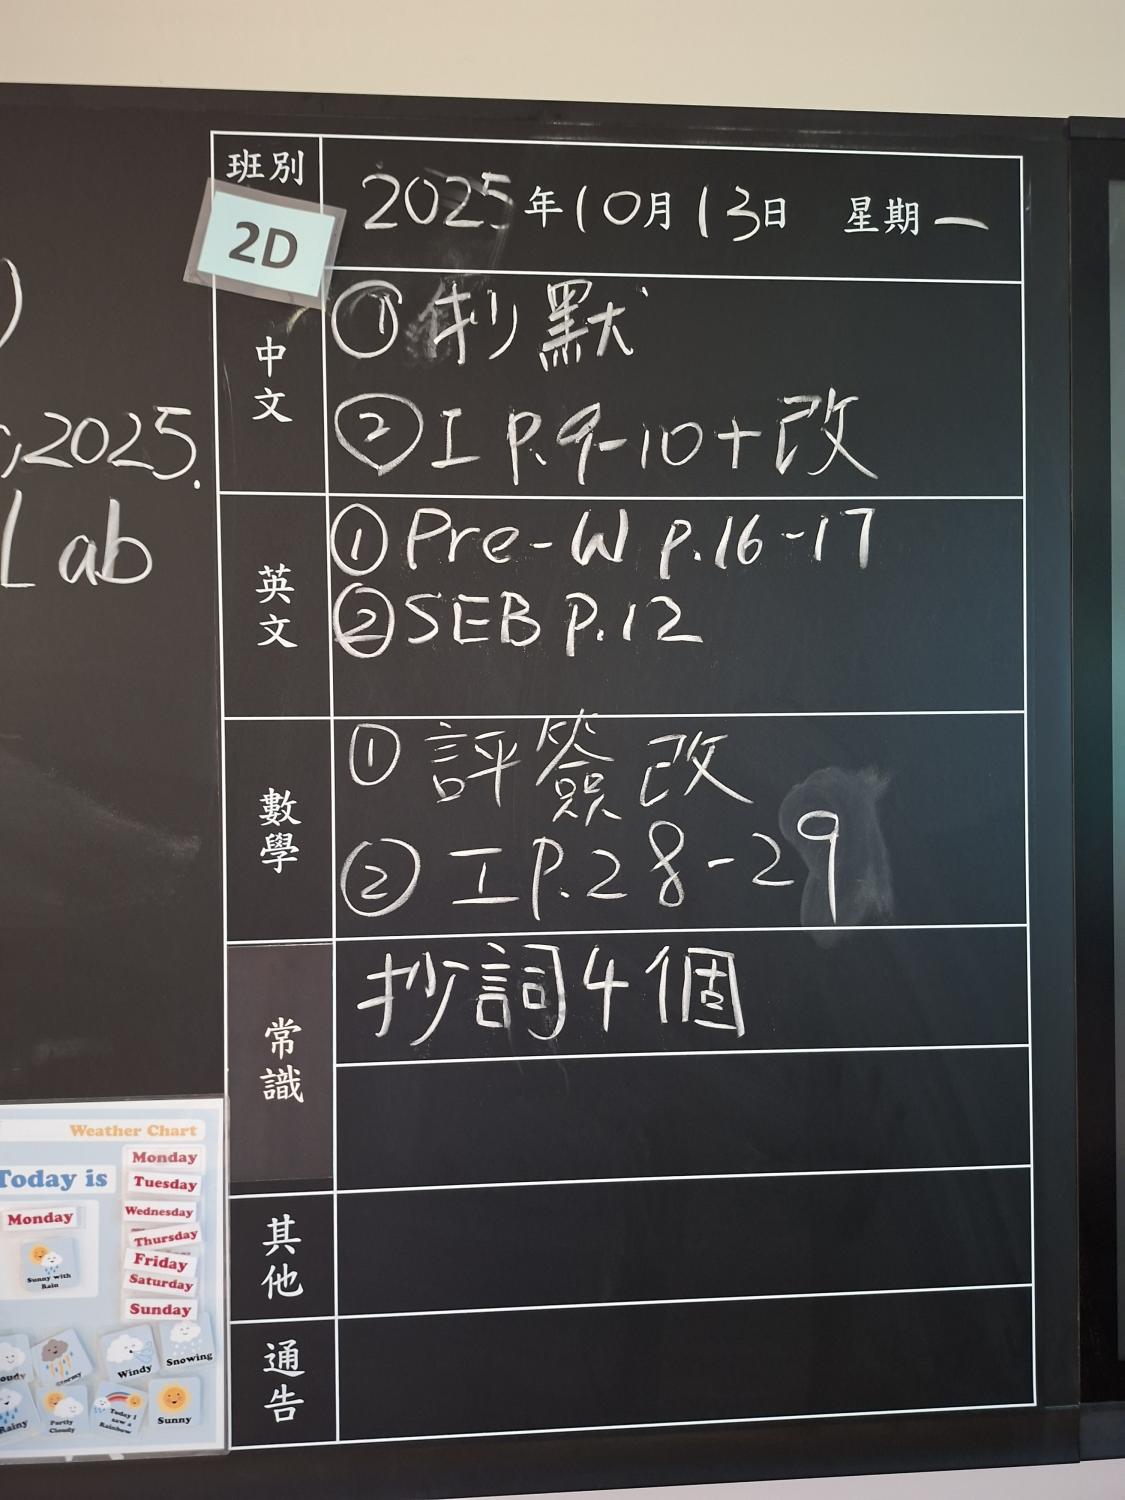 班別
2D
2025年10月13日 星期一
中文
① 抄默
② 工 P.9-10+改
英文
① Pre-W P.16-17
② SEB P.12
數學
① 評簽改
② 工 P.28-29
常識
抄詞4個
其他
通告
)
,2025.
Lab
Weather Chart
Today is
Monday
Sunny with Rain
Monday
Tuesday
Wednesday
Thursday
Friday
Saturday
Sunday
oudy
Stormy
Windy
Snowing
Rainy
Partly Cloudy
Today I saw a Rainbow
Sunny